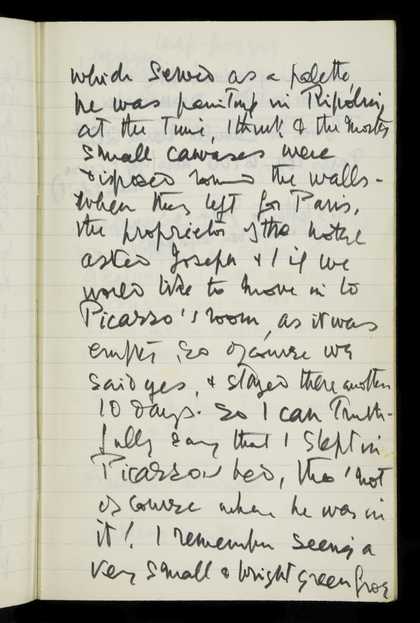 which served as a palette,
he was painting in Ripolin,
at the time, I think & the mostly
small canvases were
disposed round the walls -
When they left for Paris,
the proprietor of the hotel
asked Joseph & I if we
would like to move in to
Picasso's room, as it was
empty, so of course we
said yes, & stayed there another
10 days. So I can truth-
fully say that I slept in
Picassos bed, tho' not
of course when he was in
it! I remember seeing a
very small & bright green frog